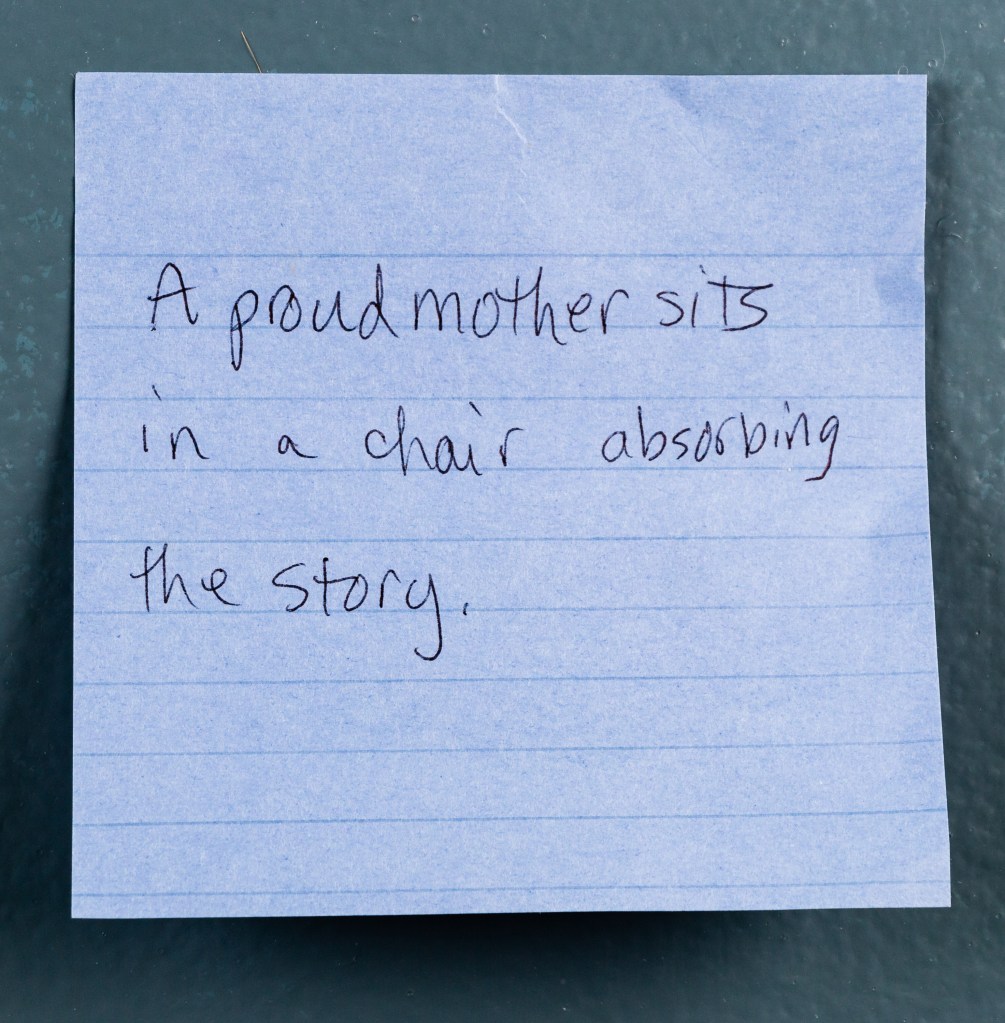 A proud mother sits
in a chair absorbing
the story.